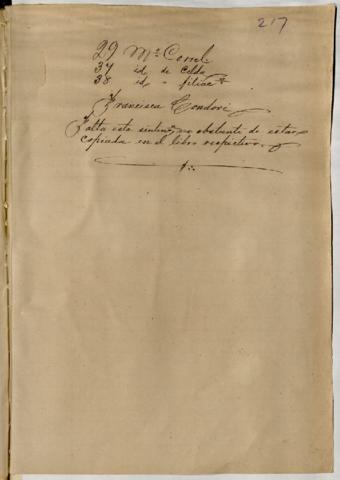 217
29 Mo Correl
37 id de Celda
38 id " filiac
Francisca Condori
Falta esta sentena, no obstante de estar
copiada en el libro respectivo.